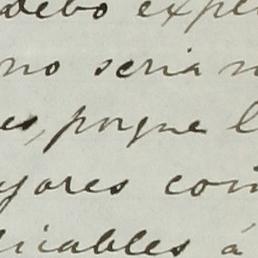 debo expe
no seria n
es, porque l
yores com
licables á